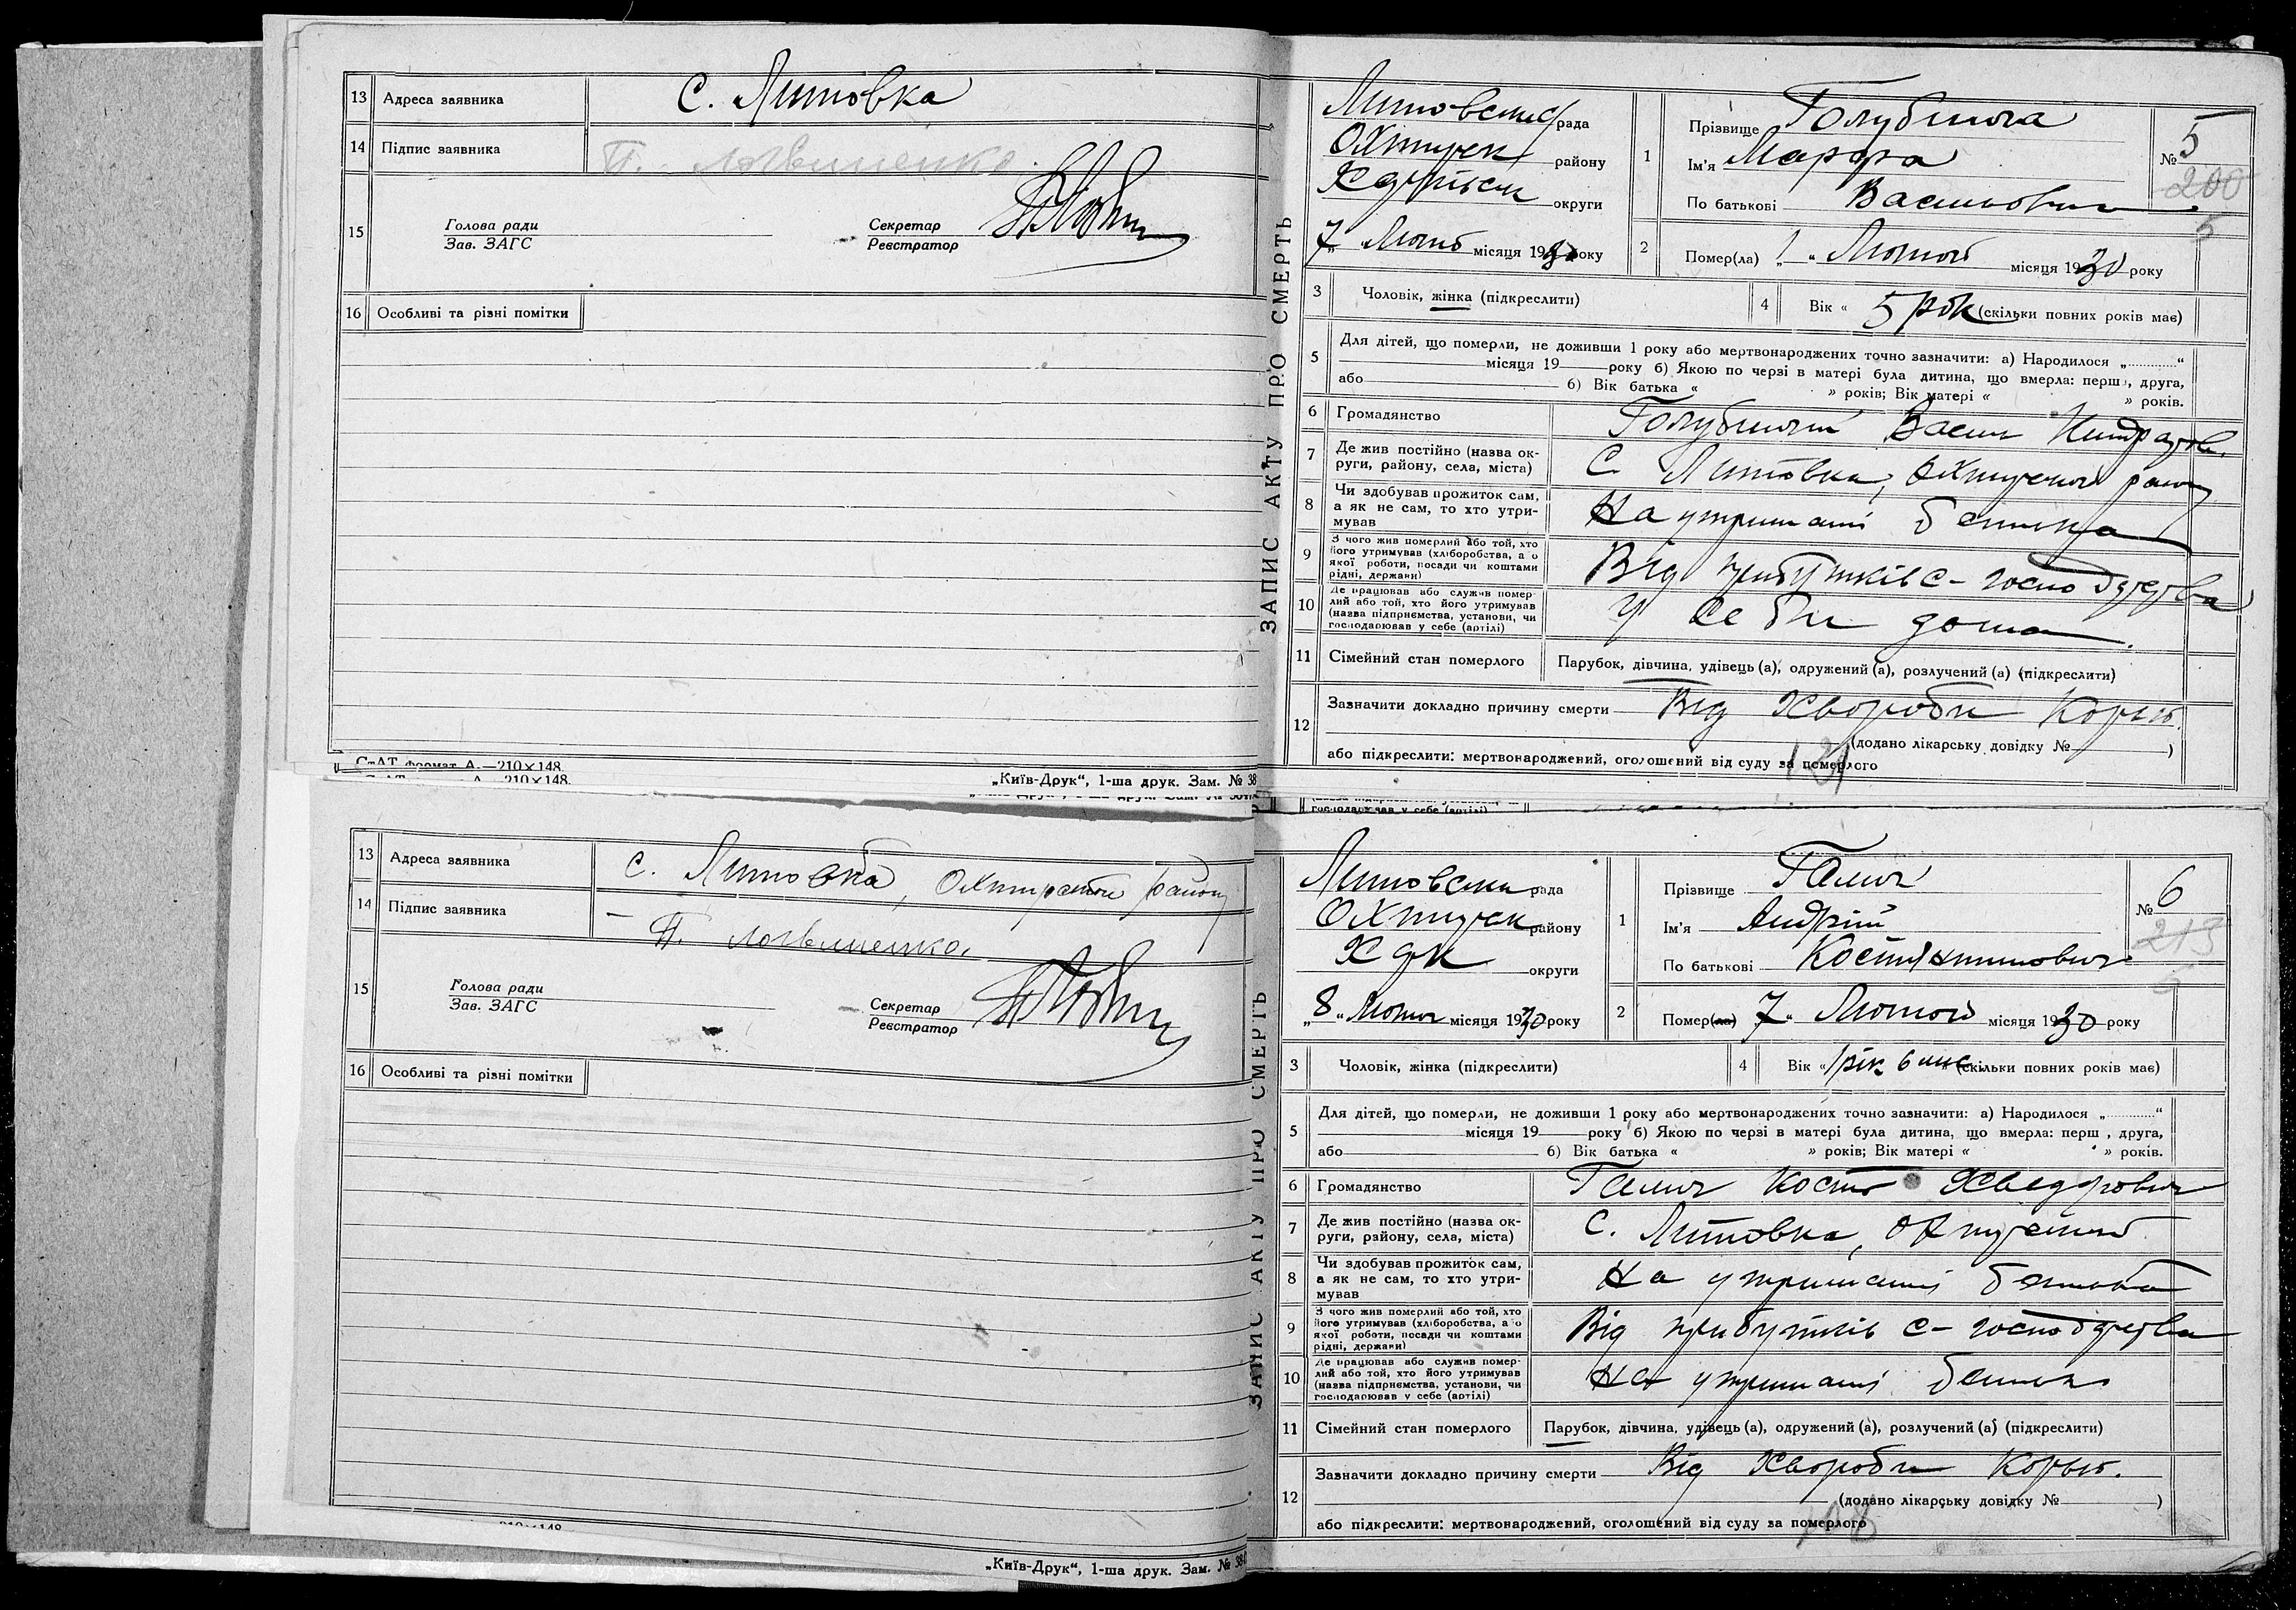 13 Адреса заявника С. Литовка
14 Підпис заявника П. Логвиненко
15 Голова ради
Зав. ЗАГС
Секретар
Реєстратор
16 Особливі та різні помітки
СтАТ формат А.—210×148.
210×148.
„Київ-Друк“, 1-ша друк. Зам. № 38
ЗАПИС АКТУ ПРО СМЕРТЬ
Литовська рада
Охтирськ району
Харківськ округи
„7„ Лютого місяця 1930 року
1 Прізвище Голубнича
Ім'я Марфа
По батькові Васильовна
№ 5
200
5
2 Помер(ла) „1“ Лютого місяця 1930 року
3 Чоловік, жінка (підкреслити)
4 Вік « 5 рок (скільки повних років має)
5 Для дітей, що померли, не доживши 1 року або мертвонароджених точно зазначити: а) Народилося „............“
місяця 19 року б) Якою по черзі в матері була дитина, що вмерла: перш, друга,
або б) Вік батька « » років; Вік матері « » років.
6 Громадянство Голубничий Васил Кіндратов.
7 Де жив постійно (назва округи, району, села, міста) С Литовка, Охтирськ район
8 Чи здобував прожиток сам, а як не сам, то хто утримував На утриманні батька
9 З чого жив померлий або той, хто його утримував (хліборобства, а о якої роботи, посади чи коштами рідні, держави) Від прибутків с-господарства
10 Де працював або служив помер-лий або той, хто його утримував (назва підприємства, установи, чи господарював у себе (артілі) У себе дома.
11 Сімейний стан померлого Парубок, дівчина, удівець (а), одружений (а), розлучений (а) (підкреслити)
12 Зазначити докладно причину смерти Від хвороби Корью.
(додано лікарську довідку № )
або підкреслити: мертвонароджений, оголошений від суду за померлого
13 Адреса заявника С. Литовка, Охтирського району
14 Підпис заявника П. Логвиненко.
15 Голова ради
Зав. ЗАГС
Секретар
Реєстратор
16 Особливі та різні помітки
„Київ-Друк“, 1-ша друк. Зам. № 38
ЗАПИС АКТУ ПРО СМЕРТЬ
Литовська рада
Охтирськ району
округи
„8„ Лютого місяця 1930 року
1 Прізвище Галич
Ім'я Андрій
По батькові Костянтинович
№ 6
213
2 Помер(ла) 7„ Лютого місяця 1930 року
3 Чоловік, жінка (підкреслити)
4 Вік « 1 рік 6 міс (скільки повних років має)
5 Для дітей, що померли, не доживши 1 року або мертвонароджених точно зазначити: а) Народилося „............“
місяця 19 року б) Якою по черзі в матері була дитина, що вмерла: перш , друга,
або б) Вік батька « » років; Вік матері « » років.
6 Громадянство Галич Кость Хведорович
7 Де жив постійно (назва округи, району, села, міста) С. Литовка, Охтирський
8 Чи здобував прожиток сам, а як не сам, то хто утримував На утриманні батька
9 З чого жив померлий або той, хто його утримував (хліборобства, а о якої роботи, посади чи коштами рідні, держави) Від прибутків с-господарства
10 Де працював або служив помер-лий або той, хто його утримував (назва підприємства, установи, чи господарював у себе (артілі) На утриманні батька
11 Сімейний стан померлого Парубок, дівчина, удівець (а), одружений (а), розлучений (а) (підкреслити)
12 Зазначити докладно причину смерти Від хвороби Корью.
(додано лікарську довідку № )
або підкреслити: мертвонароджений, оголошений від суду за померлого